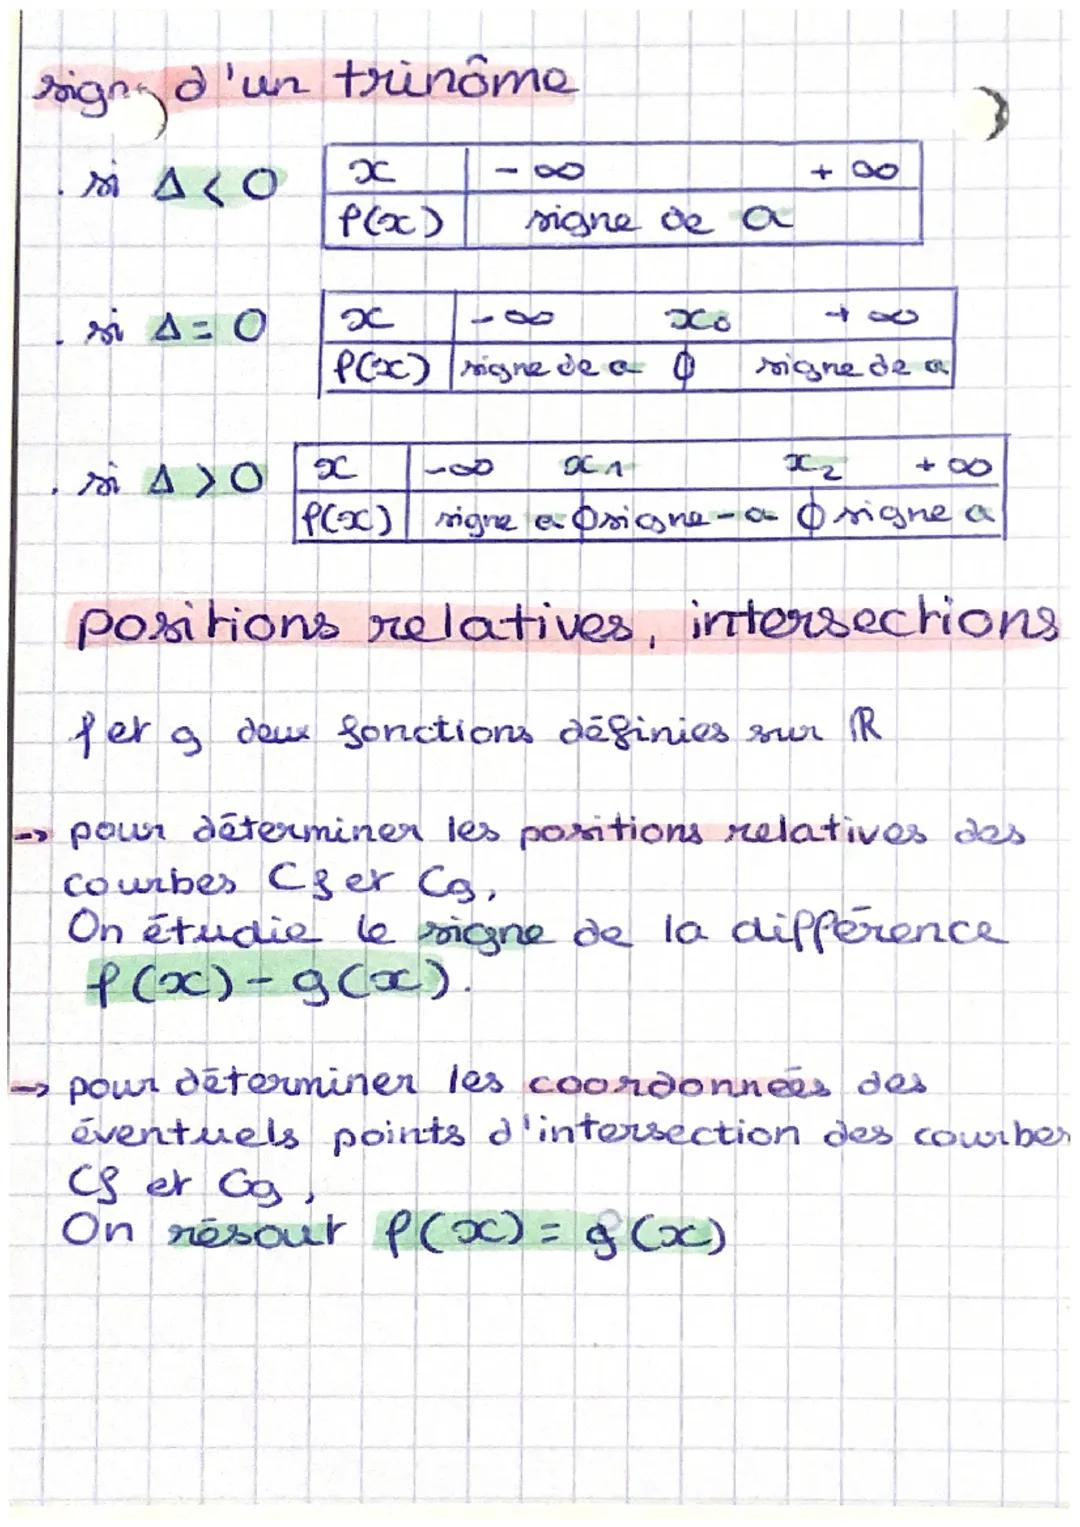 signe d'un trinôme
. si Δ < 0
x -∞ +∞
f(x) signe de a
. si Δ = 0
x -∞ x₀ +∞
f(x) signe de a 0 signe de a
. si Δ > 0
x -∞ x₁ x₂ +∞
f(x) signe a 0 signe -a 0 signe a
positions relatives, intersections
f et g deux fonctions définies sur ℝ
→ pour déterminer les positions relatives des
courbes Cf et Cg,
On étudie le signe de la différence
f(x) - g(x).
→ pour déterminer les coordonnées des
éventuels points d'intersection des courbes
Cf et Cg,
On résout f(x) = g(x)